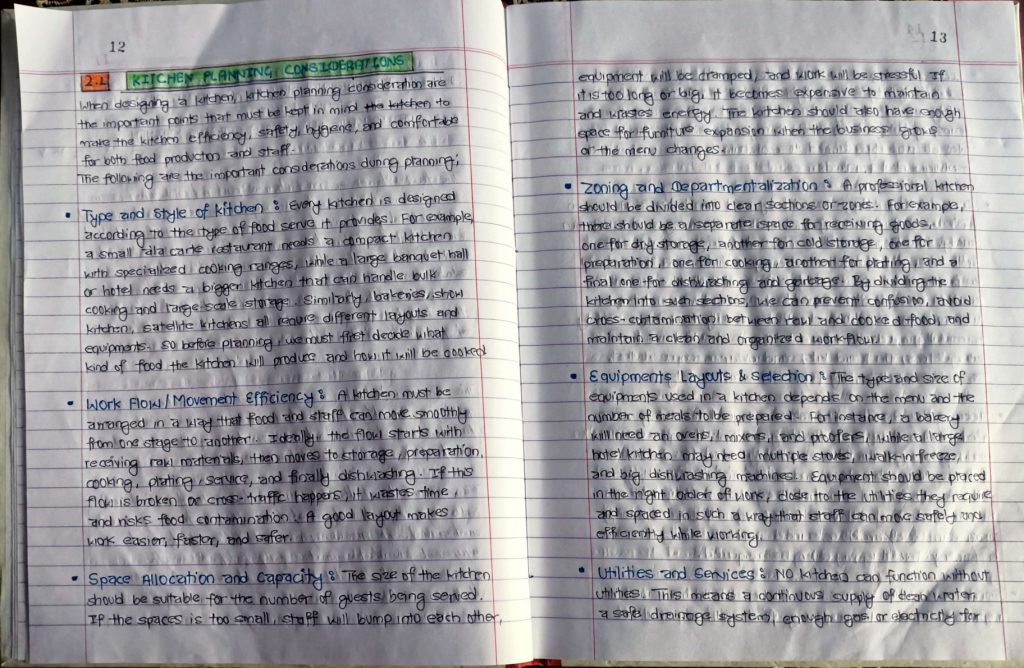 12
2.1 KITCHEN PLANNING CONSIDERATIONS
When designing a kitchen, kitchen planning consideration are
the important points that must be kept in mind the kitchen to
make the kitchen efficiency, safety, hygiene, and comfortable
for both food production and staff.
The following are the important considerations during planning;
• Type and Style of Kitchen : Every kitchen is designed
according to the type of food serve it provides. For example,
a small 'ala carte restaurant needs a compact kitchen
with specialized cooking ranges, while a large banquet hall
or hotel needs a bigger kitchen that can handle bulk
cooking and large scale storage. Similarly, bakeries, show
kitchen, satellite kitchens all require different layouts and
equipments. So before planning, we must first decide what
kind of food the kitchen will produce and how it will be cooked
• Work Flow/Movement Efficiency : A kitchen must be
arranged in a way that food and staff can move smoothly
from one stage to another. Ideally, the flow starts with
receiving raw materials, then moves to storage, preparation,
cooking, plating, service, and finally dishwashing. If this
flow is broken or cross-traffic happens, it wastes time
and risks food contamination. A good layout makes
work easier, faster, and safer.
• Space Allocation and Capacity : The size of the kitchen
should be suitable for the number of guests being served.
If the spaces is too small, staff will bump into each other,
13
equipment will be cramped, and work will be stressful. If
it is too long or big, it becomes expensive to maintain
and wastes energy. The kitchen should also have enough
space for furniture expansion when the business grows
or the menu changes.
• Zoning and Departmentalization : A professional kitchen
should be divided into clean sections or zones. For example,
there should be a separate space for receiving goods,
one for dry storage, another for cold storage, one for
preparation, one for cooking, another for plating, and a
final one for dishwashing and garbage. By dividing the
kitchen into such sections, we can prevent confusion, avoid
cross-contamination between raw and cooked food, and
maintain a clean and organized workflow.
• Equipments Layouts & Selection : The type and size of
equipments used in a kitchen depends on the menu and the
number of meals to be prepared. For instance, a bakery
will need an ovens, mixers, and proofers, while a large
hotel kitchen may need multiple stoves, walk-in freeze,
and big dishwashing machines. Equipment should be placed
in the right order of work, close to the utilities they require
and spaced in such a way that staff can move safely and
efficiently while working.
• Utilities and Services : NO kitchen can function without
utilities. This means a continuous supply of clean water,
a safe drainage system, enough gas or electricity for